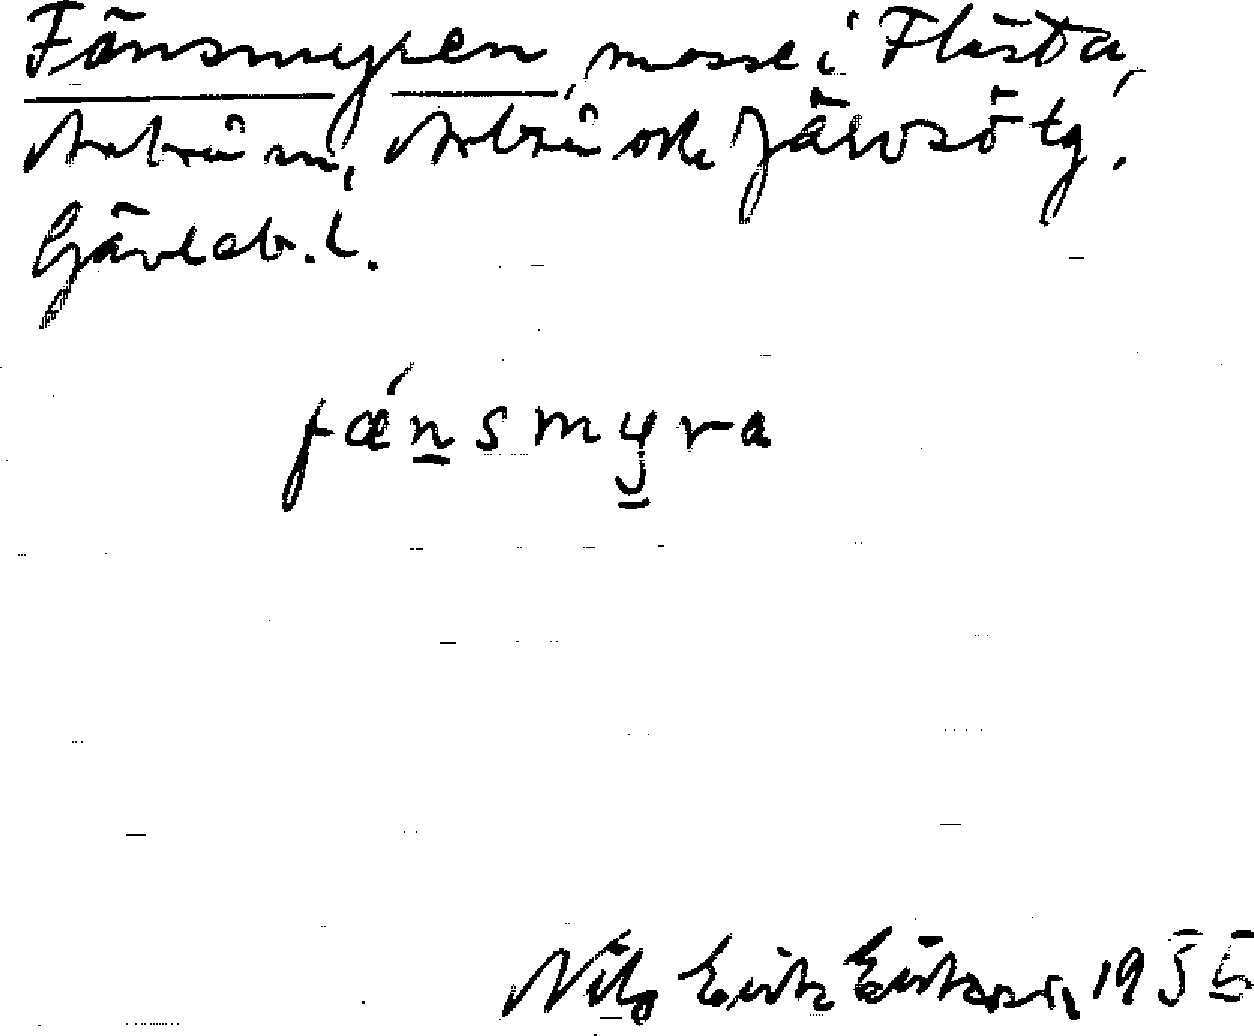 Fänsmyren, mosse i Flästa,
Arbrå sn, Arbrå och Järvsö tg.
Gävleb. l.
fǽnsmyra
Nils Erik Eriksson, 1935